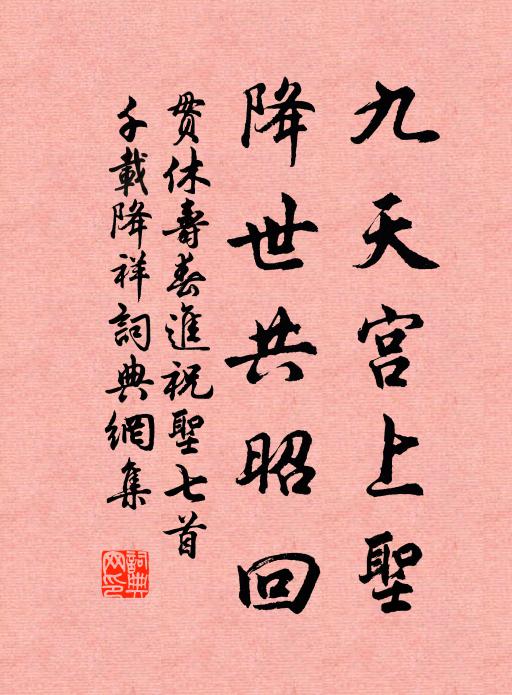 九天宫上聖
降世共昭回
贯休壽春進祝聖七首
千載降祥詞典網集
詞典网印